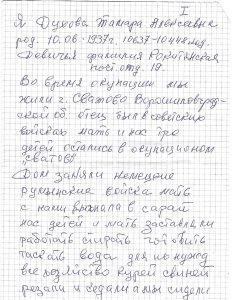 I
Я Духова Тамара Алексеевна
род. 10.06-1937г.
Девичья фамилия
19.
Во время окупации мы
жили г. Сватова Ворошиловград-
ской об. отец был в советских
войсках мать и нас тро
детей остались в окупационом
Сватове
Дом заняли немецкие
румынские войска мать
с нами выгнала в сарай
нас детей и мать заставляли
работать стирать готовить
таскать вода для их нужд
все хозяйство курей свиней
резали и съедали а мы сидели